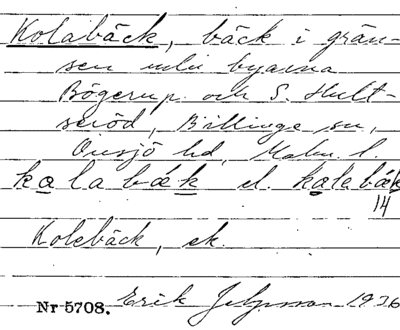 Kolabäck, bäck i grän-
sen mln byarna
Bögerup och S. Hult-
seröd, Billinge sn,
Onsjö hd, Malm. l.
kolabäk el. kolabäk
14
Kolebäck, ek.
Nr 5708. Erik 1926